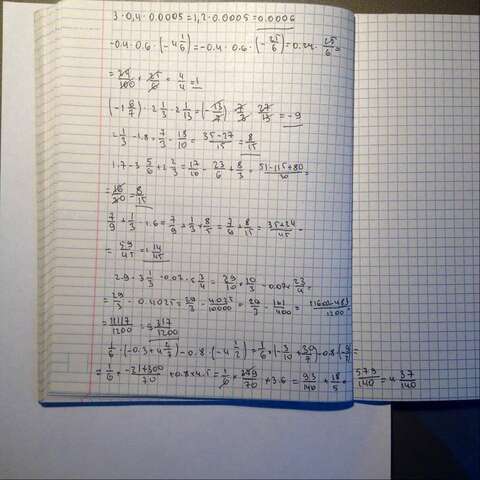 3 · 0,4 · 0.0005 = 1,2 · 0.0005 = 0.0006
-0.4 · 0.6 · (-4 1/6) = -0.4 · 0.6 · (-25/6) = 0.24 · 25/6 =
= 24/100 · 25/6 = 4/4 = 1
(-1 6/7) · 2 1/3 · 2 1/13 = (-13/7) · 7/3 · 27/13 = -9
2 1/3 - 1.8 = 7/3 - 18/10 = 35-27/15 = 8/15
1.7 - 3 5/6 + 2 2/3 = 17/10 - 23/6 + 8/3 = 51-115+80/30 =
= 16/30 = 8/15
7/9 + 1/3 · 1.6 = 7/9 + 1/3 · 8/5 = 7/9 + 8/15 = 35+24/45 =
= 59/45 = 1 14/45
2.9 · 3 1/3 - 0.07 · 5 3/4 = 29/10 · 10/3 - 0.07 · 23/4 =
= 29/3 - 0.4025 = 29/3 - 4025/10000 = 29/3 - 161/400 = 11600-483/1200 =
= 11117/1200 = 9 317/1200
1/6 · (-0.3 + 4 2/7) - 0.8 · (-4 1/2) = 1/6 · (-3/10 + 30/7) - 0.8 · (-9/2) =
= 1/6 · -21+300/70 + 0.8 · 4.5 = 1/6 · 279/70 + 3.6 = 93/140 + 18/5 = 579/140 = 4